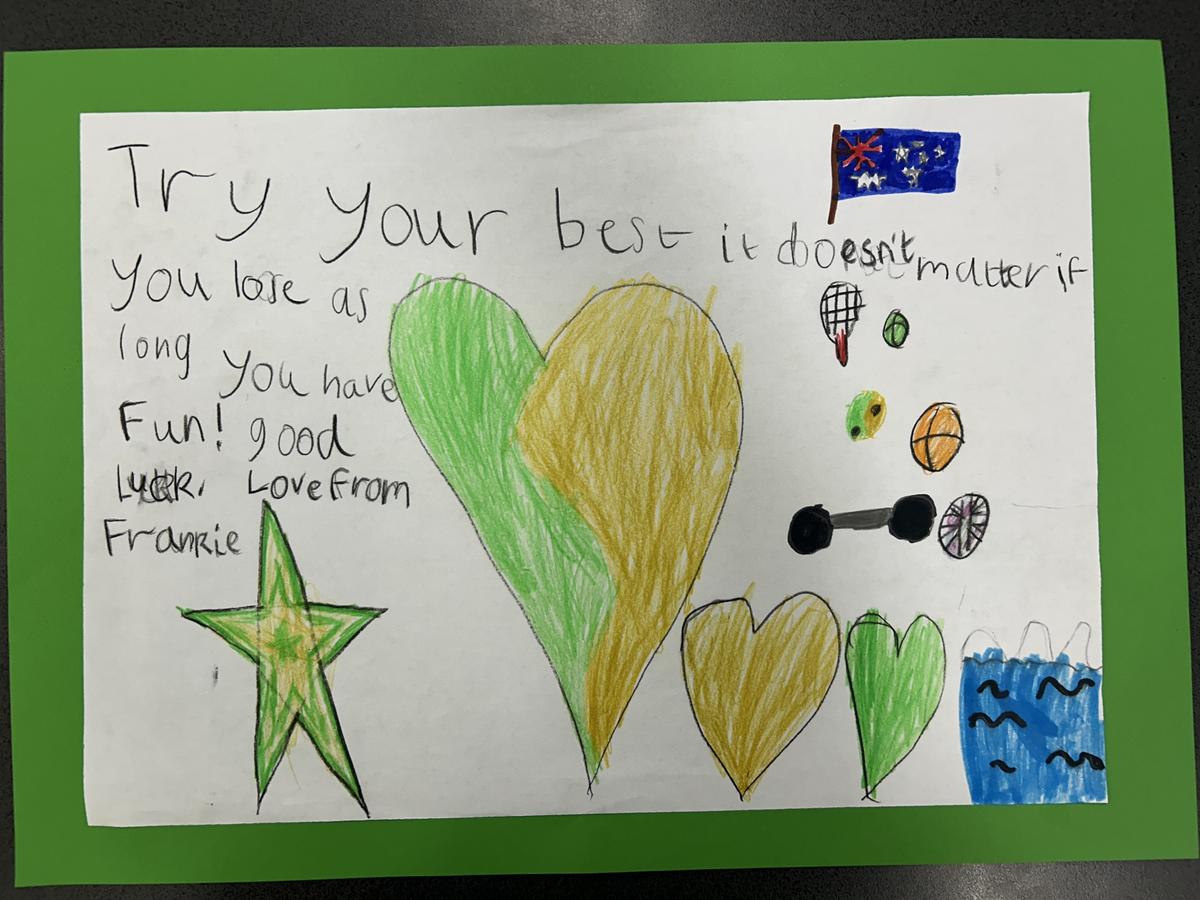 Try your best it doesn't matter if
you lose as
long you have
Fun! good
Luck. Love From
Frankie